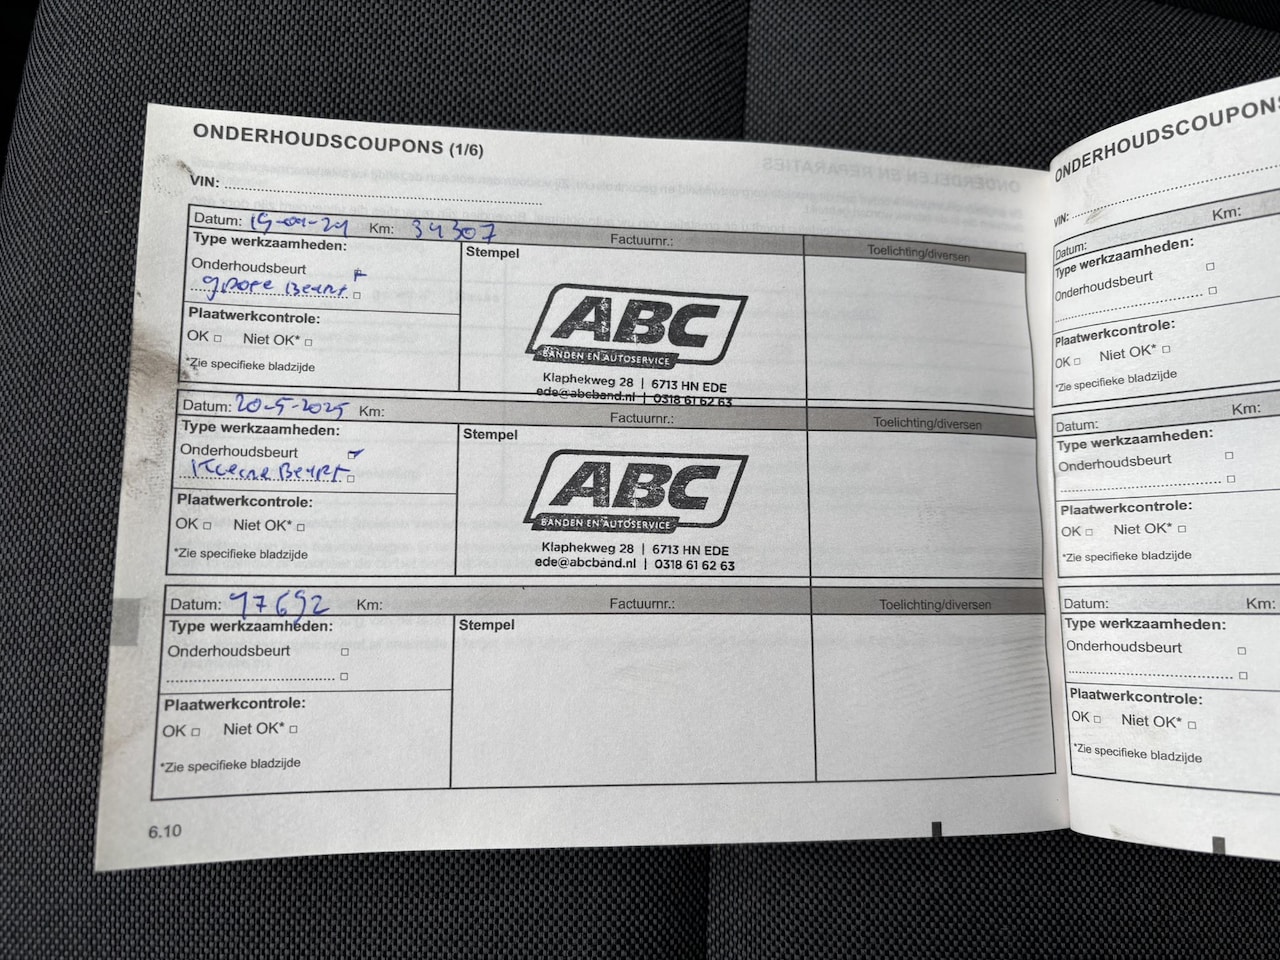 ONDERHOUDSCOUPONS (1/6)
VIN:
Datum: 19-04-24 Km: 34307 Factuurnr.: Toelichting/diversen
Type werkzaamheden: Stempel
Onderhoudsbeurt
grote Beurt
Plaatwerkcontrole:
OK □ Niet OK* □
*Zie specifieke bladzijde
ABC
BANDEN EN AUTOSERVICE
Klaphekweg 28 | 6713 HN EDE
ede@abcband.nl | 0318 61 62 63
Datum: 20-5-2025 Km: Factuurnr.: Toelichting/diversen
Type werkzaamheden: Stempel
Onderhoudsbeurt
Kleine Beurt
Plaatwerkcontrole:
OK □ Niet OK* □
*Zie specifieke bladzijde
ABC
BANDEN EN AUTOSERVICE
Klaphekweg 28 | 6713 HN EDE
ede@abcband.nl | 0318 61 62 63
Datum: 47692 Km: Factuurnr.: Toelichting/diversen
Type werkzaamheden: Stempel
Onderhoudsbeurt □
Plaatwerkcontrole:
OK □ Niet OK* □
*Zie specifieke bladzijde
6.10
ONDERHOUDSCOUPONS
VIN:
Datum: Km:
Type werkzaamheden:
Onderhoudsbeurt □
Plaatwerkcontrole:
OK □ Niet OK* □
*Zie specifieke bladzijde
Datum: Km:
Type werkzaamheden:
Onderhoudsbeurt □
Plaatwerkcontrole:
OK □ Niet OK* □
*Zie specifieke bladzijde
Datum: Km:
Type werkzaamheden:
Onderhoudsbeurt □
Plaatwerkcontrole:
OK □ Niet OK* □
*Zie specifieke bladzijde